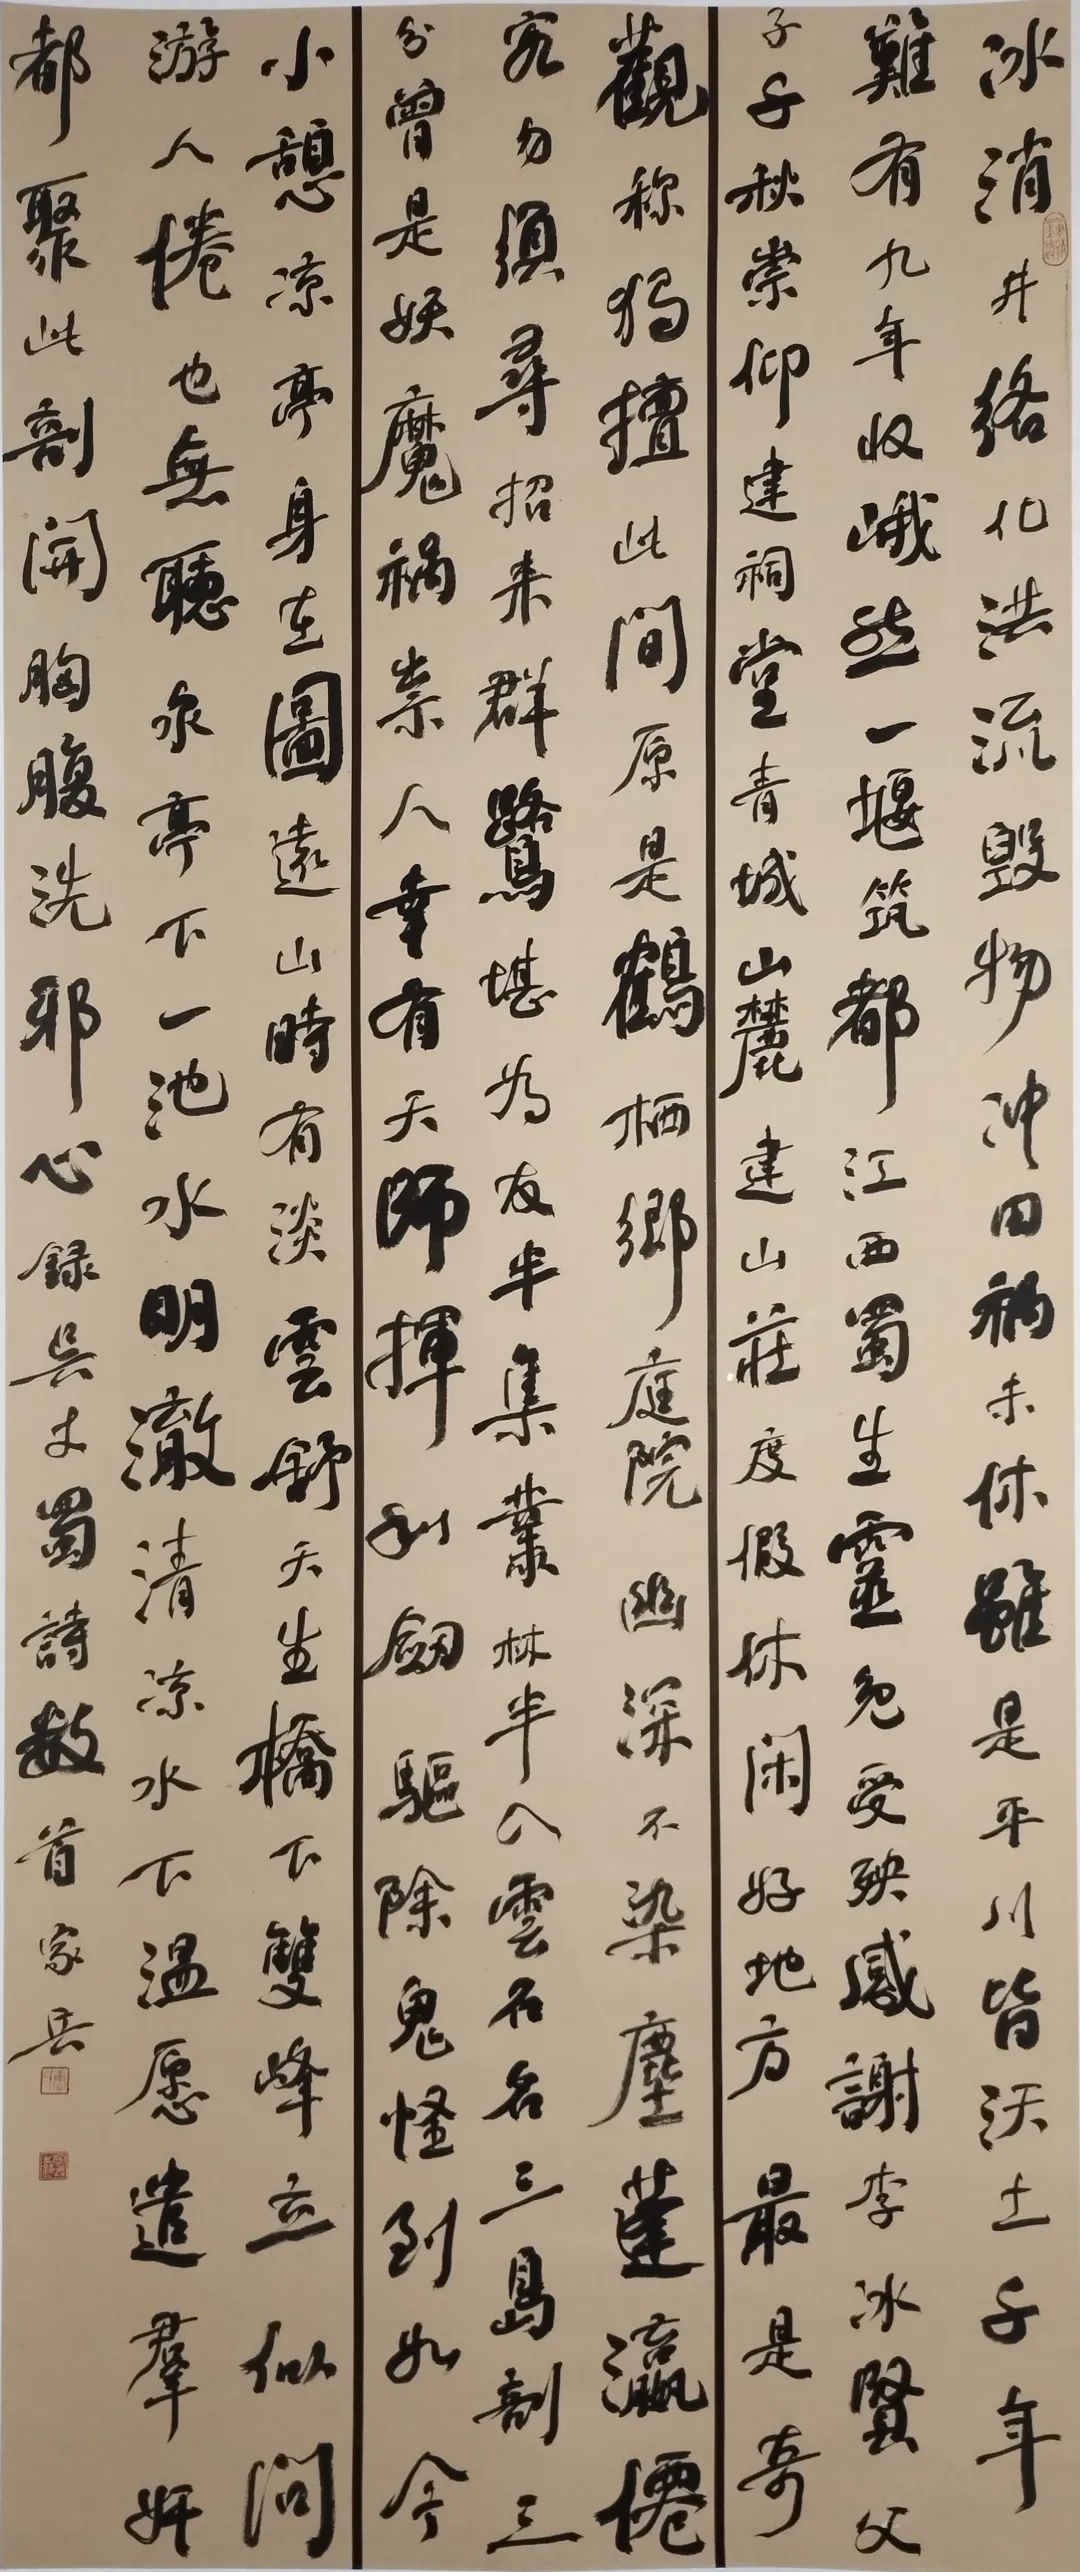 冰消井络化洪流毁物冲田祸未休虽是平川皆沃土千年
難有九年收峨然一堰筑都江西蜀生靈免受殃感謝李冰賢父
子千秋崇仰建祠堂青城山麓建山莊度假休闲好地方最是奇
觀称獨擅此間原是鶴栖鄉庭院幽深不染塵蓬瀛僊
客勿須尋招来群鷺堪为友半集叢林半入雲石名三島剖三
分曾是妖魔祸祟人幸有天師揮利劍驅除鬼怪到如今
小憩凉亭身在圖遠山時有淡雲舒天生橋下雙峰立似问
游人倦也無聽泉亭下一池水明澈清凉水下温愿遣羣奸
都聚此剖開胸腹洗邪心録吴丈蜀詩数首家兵